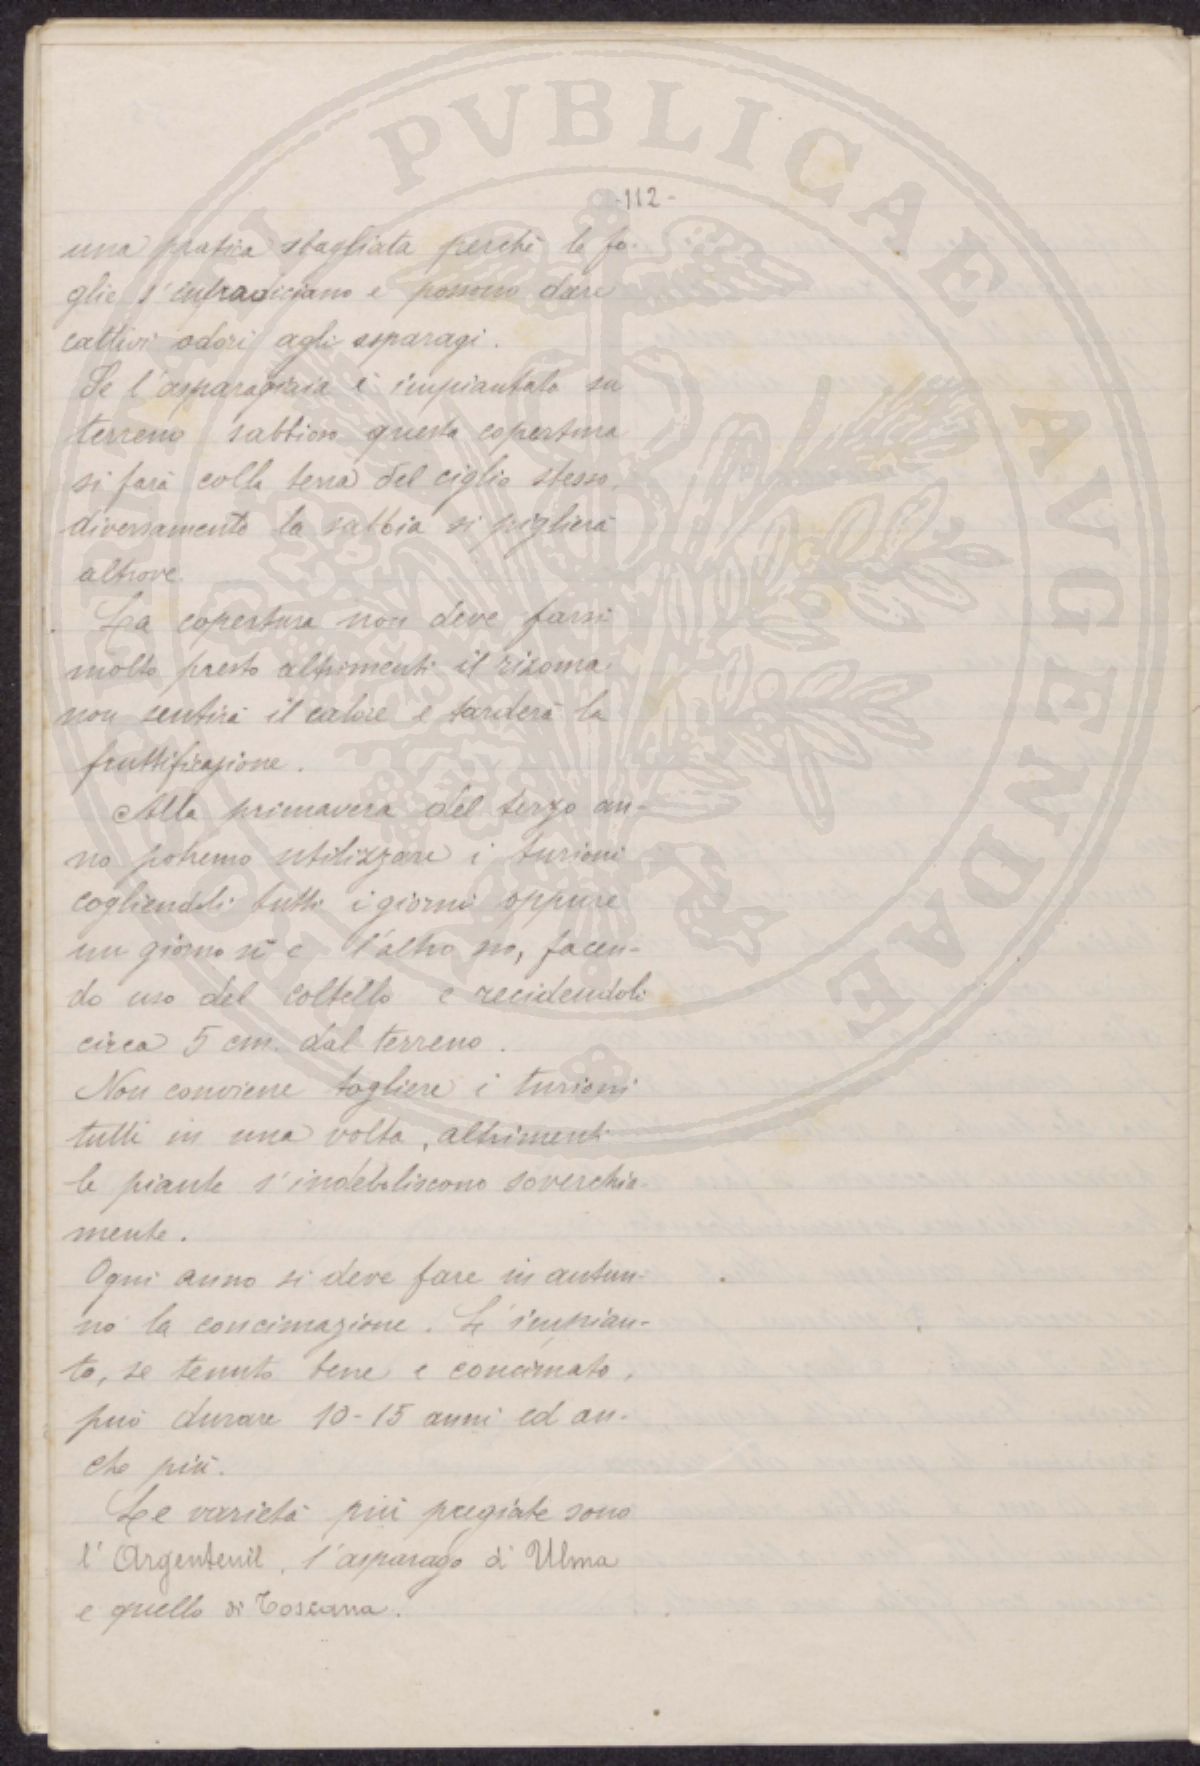 -112-
una pratica sbagliata perchè le fo-
glie s'infradiciano e possono dare
cattivi odori agli asparagi.
Se l'asparagiaia è impiantata su
terreno sabbioso questa copertura
si farà colla terra del ciglio stesso,
diversamente la sabbia si piglierà
altrove.
La copertura non deve farsi
molto presto altrimenti il rizoma
non sentirà il calore e tarderà la
fruttificazione.
Alla primavera del terzo an-
no potremo utilizzare i turioni
cogliendoli tutti i giorni oppure
un giorno sì e l'altro no, facen-
do uso del coltello e recidendoli
circa 5 cm. dal terreno.
Non conviene togliere i turioni
tutti in una volta, altrimenti
le piante s'indeboliscono soverchia-
mente.
Ogni anno si deve fare in autun-
no la concimazione. L'impian-
to, se tenuto bene e concimato,
può durare 10-15 anni ed an-
che più.
Le varietà più pregiate sono
l'Argentenil, l'asparago di Ulma
e quello di Toscana.
PVBLICAE AVGENDAE